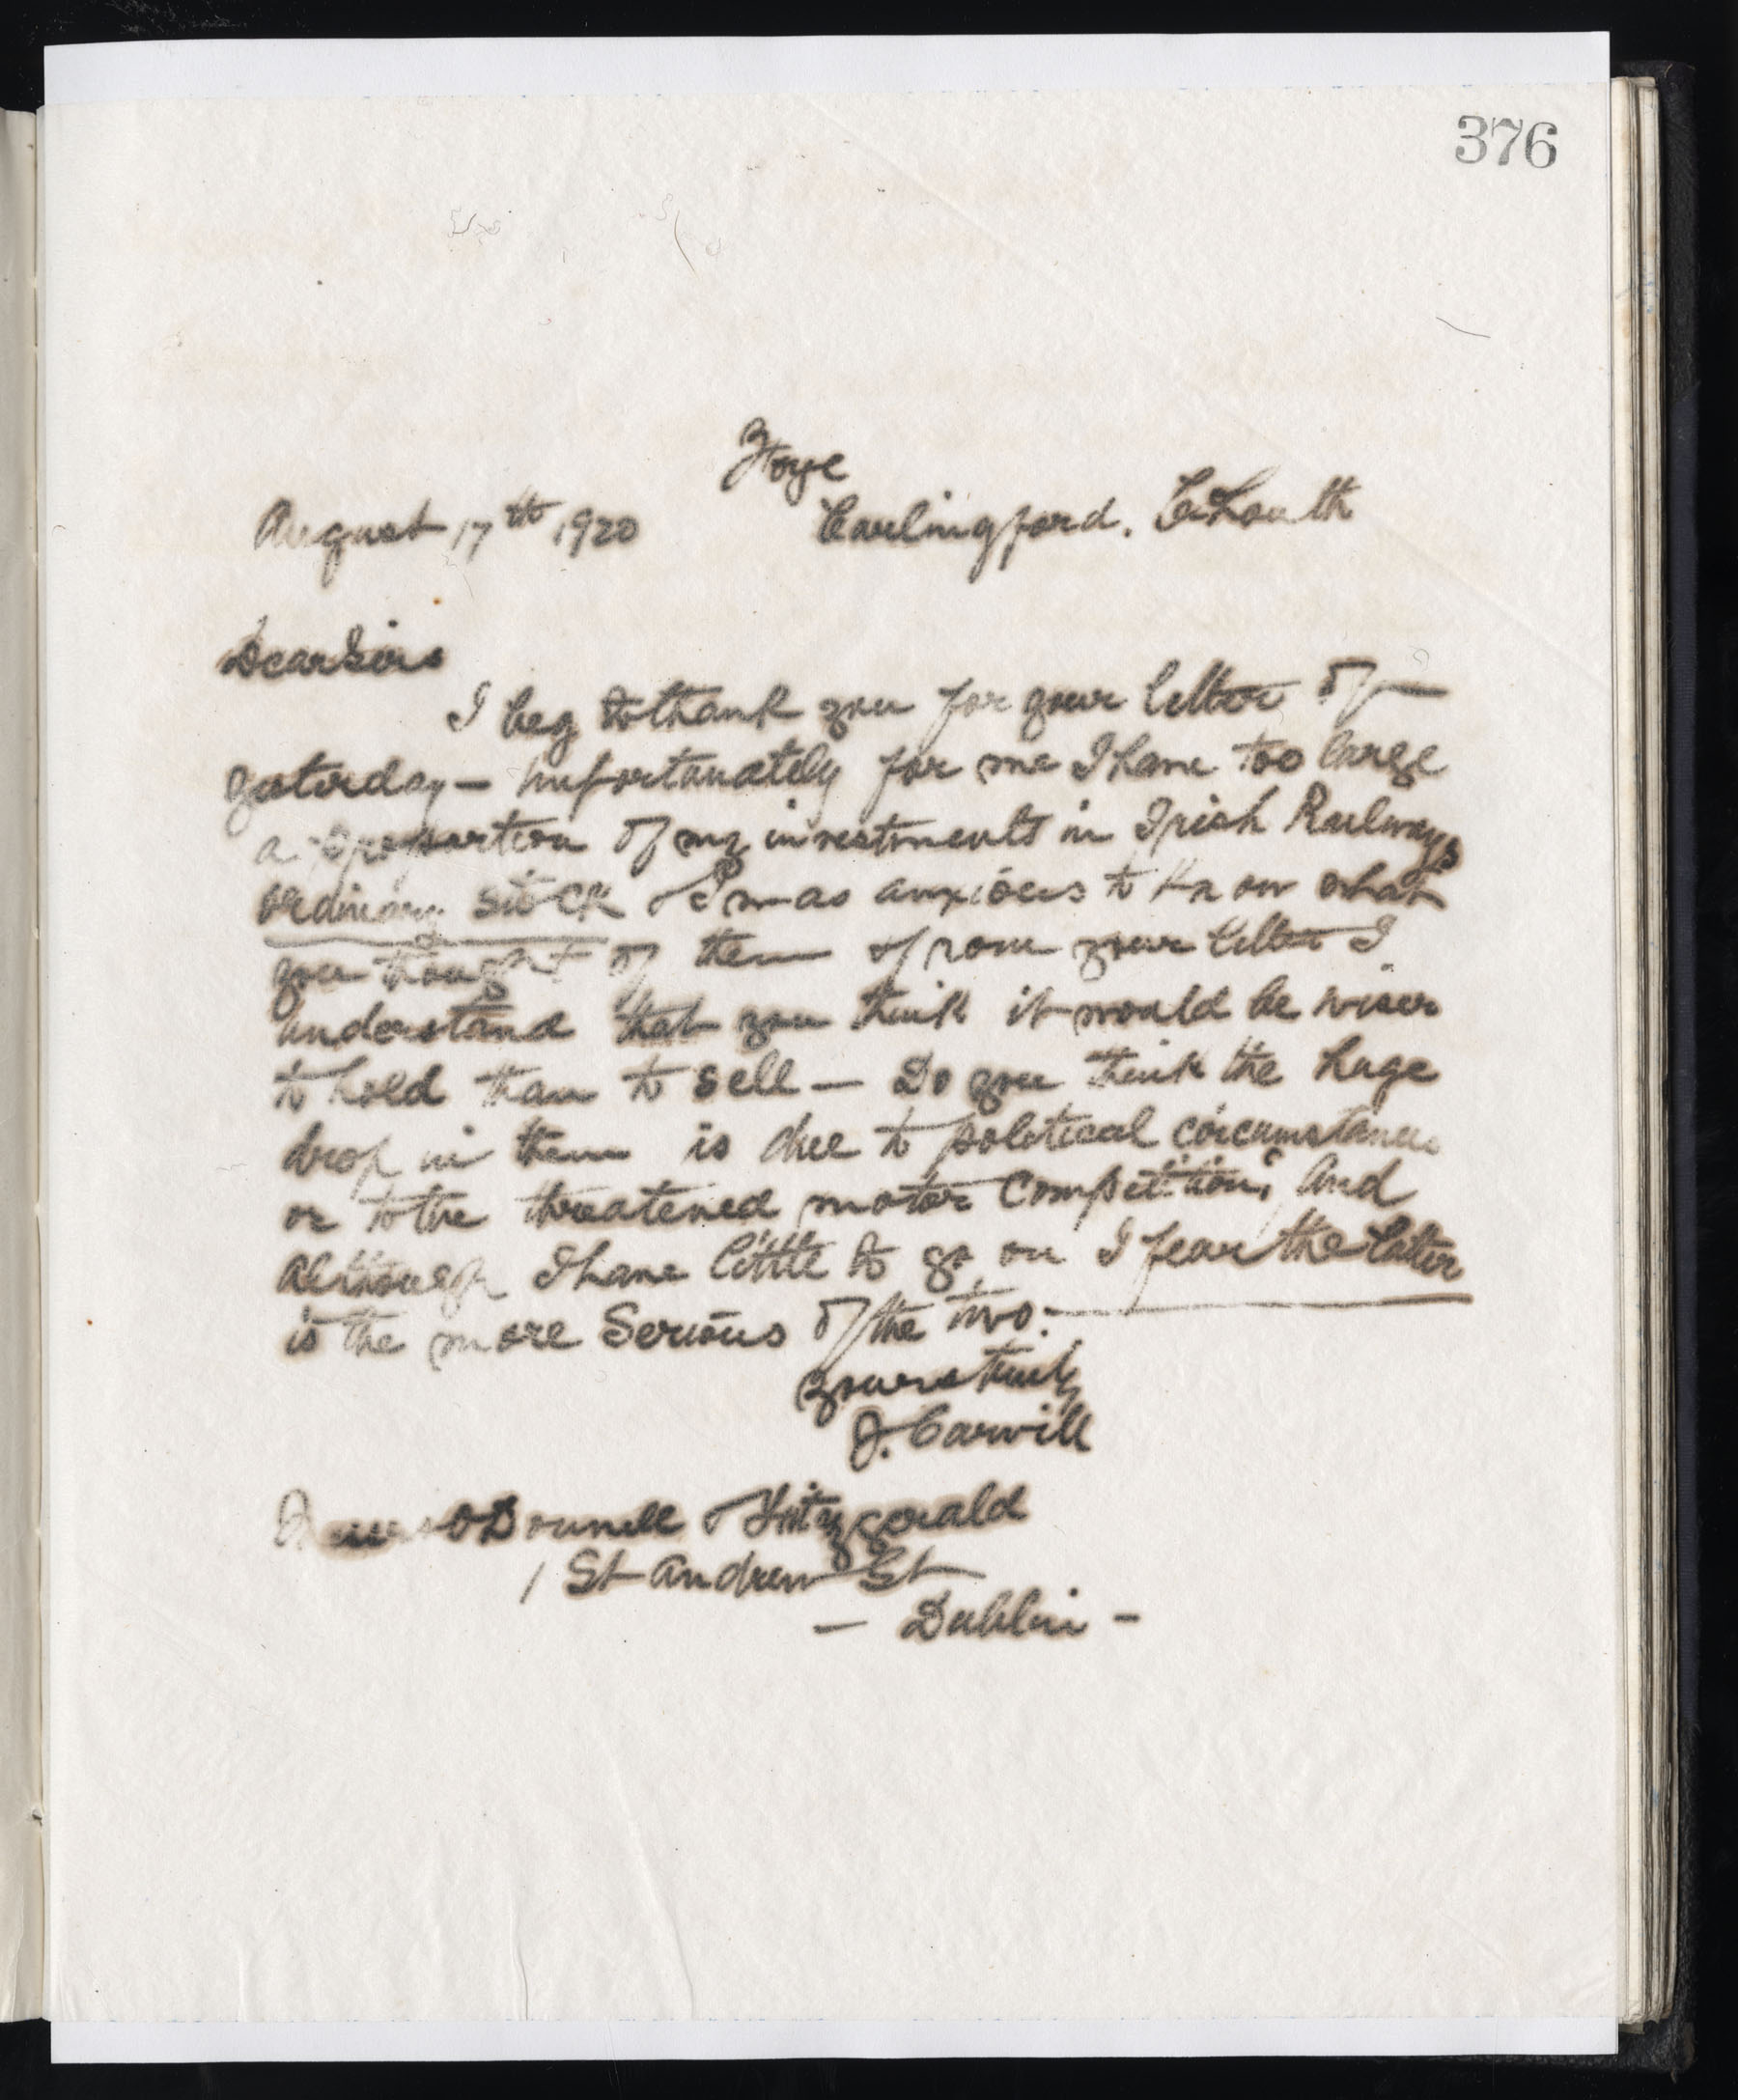 376
Foye
August 17th 1920 Carlingford. Co Louth
Dear Sirs
I beg to thank you for your letter of
yesterday — unfortunately for me I have too large
a proportion of my investments in Irish Railways
ordinary stock & I was anxious to know what
you thought of them & from your letter I
understand that you think it would be wiser
to hold than to sell — Do you think the huge
drop in them is due to political circumstances
or to the threatened motor competition, and
although I have little to go on I fear the latter
is the more serious of the two. —
yours truly
J. Carvill
Messrs O'Donnell & Fitzgerald
1 St Andrew St
— Dublin —